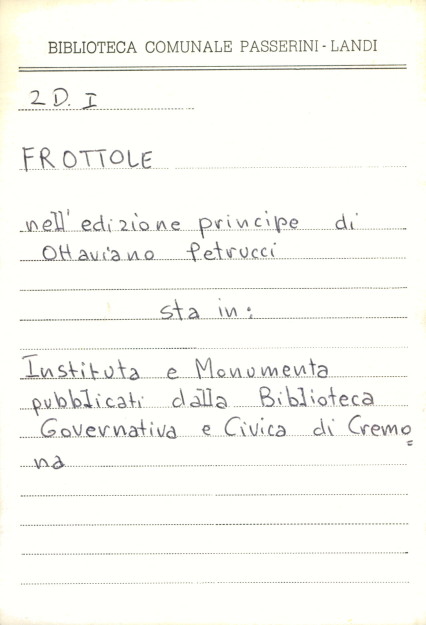 BIBLIOTECA COMUNALE PASSERINI - LANDI
2 D. I
FROTTOLE
nell' edizione principe di
Ottaviano Petrucci
sta in:
Instituta e Monumenta
pubblicati dalla Biblioteca
Governativa e Civica di Cremo=
na